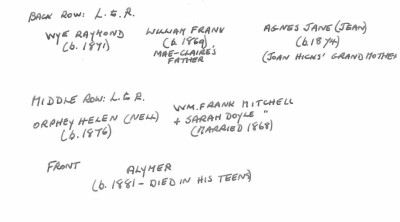 BACK ROW: L.&R.
WYE RAYMOND WILLIAM FRANK AGNES JANE (JEAN)
(b. 1871) (b. 1869) (b. 1874)
MAE-CLAIRE'S (JOAN HICKS' GRANDMOTHER
FATHER
MIDDLE ROW: L&R.
ORPHEY HELEN (NELL) WM. FRANK MITCHELL
(b. 1876) + SARAH DOYLE "
(MARRIED 1868)
FRONT ALYMER
(b. 1881 - DIED IN HIS TEENS)